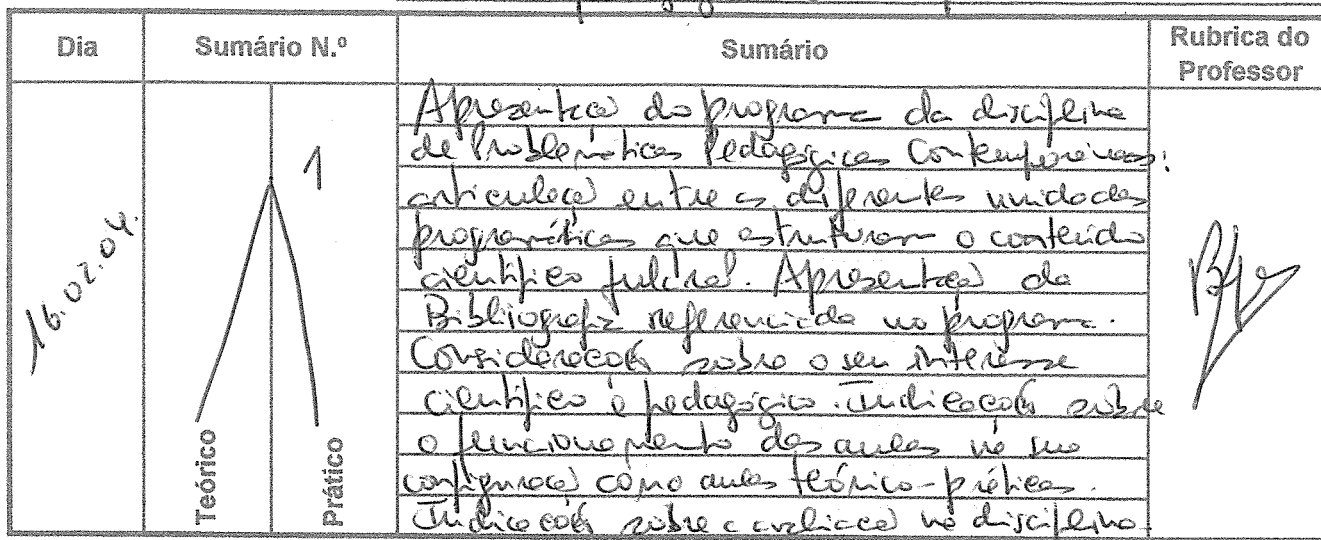 Dia Sumário N.º Sumário Rubrica do Professor
16.02.04.
1
Teórico
Prático
Apresentação do programa da disciplina
de Problemáticas Pedagógicas Contemporâneas:
articulação entre as diferentes unidades
programáticas que estruturam o conteúdo
científico fulcral. Apresentação da
Bibliografia referenciada no programa.
Considerações sobre o seu interesse
científico e pedagógico. Indicações sobre
o funcionamento das aulas na sua
configuração como aulas teórico-práticas.
Indicações sobre a avaliação na disciplina.